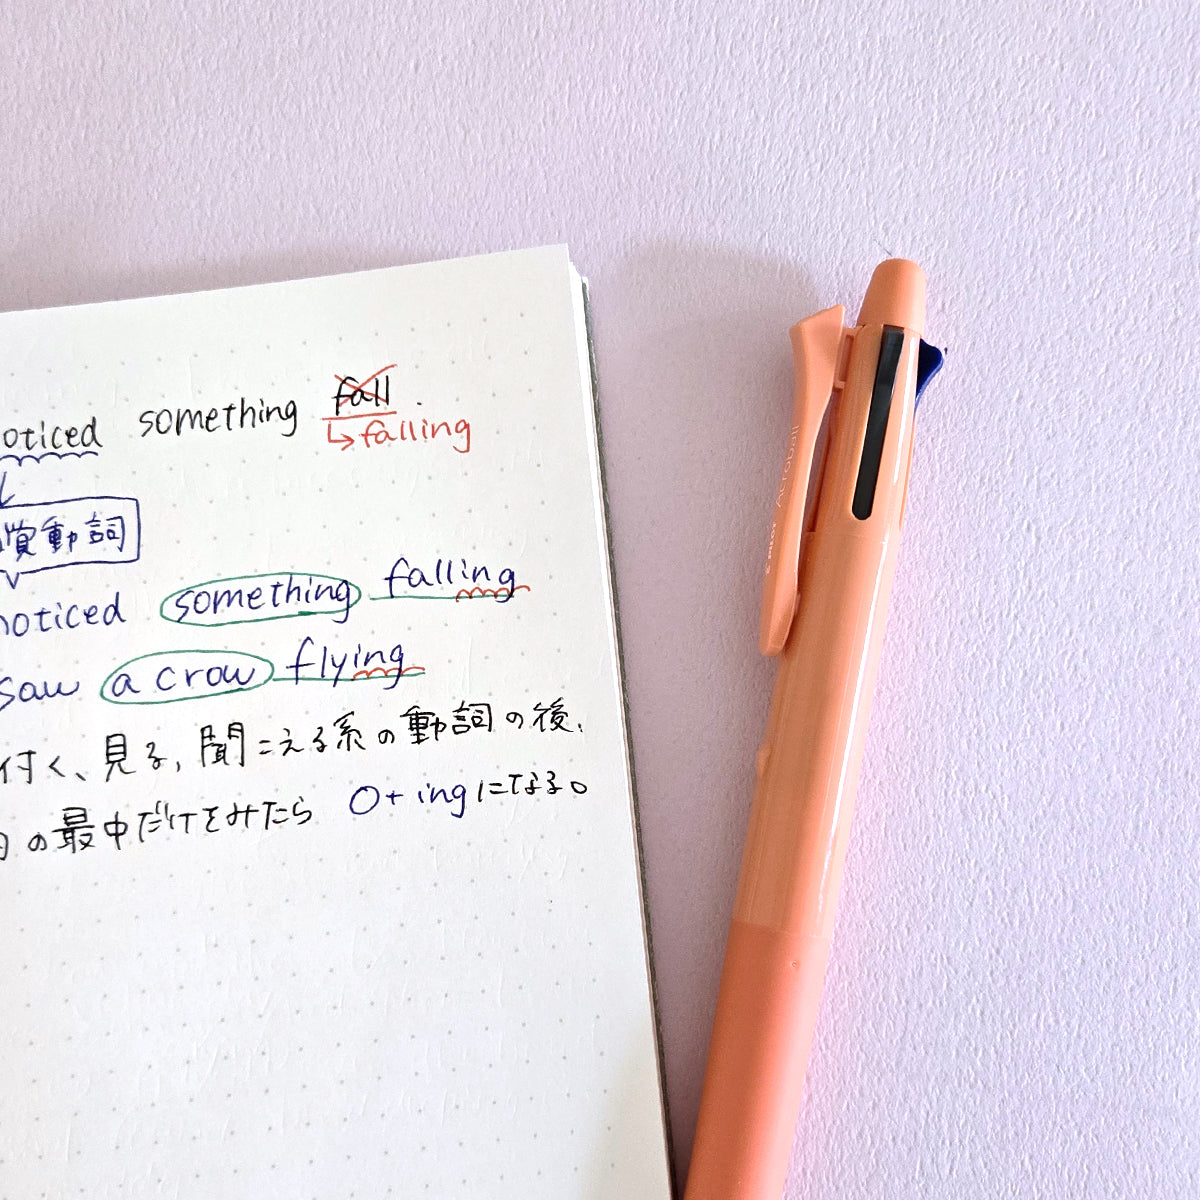 oticed something fall.
↳ falling
覚動詞
noticed something falling
saw a crow flying
付く、見る、聞こえる系の動詞の後、
の最中だけをみたら O+ingになる。
PILOT Acroball